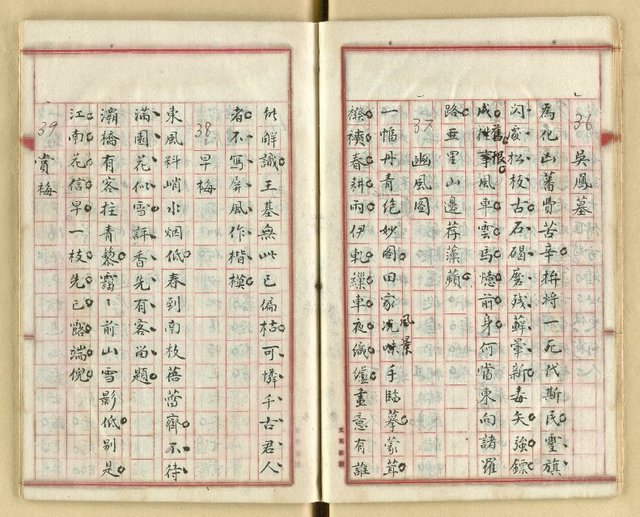 36 吳鳳墓
為化山蕃費苦辛拚將一死代斯民靈旗
閃夜松枝古石碣磨殘蘚暈新毒矢強鏢
成舊恨風車雲馬憶前身何當東向諸羅
路亞里山邊荐藻蘋
37 豳風圖
一幅丹青絕妙圖田家風景手臨摹蒙茸
襏襫春耕雨伊軋繰車夜織爐畫意有誰
能解識王基無此已偏枯可憐千古君人
者不寫屏風作楷模
38 早梅
東風料峭水烟低春到南枝蓓蕾齊不待
滿園花似雪評香先有客留題
灞橋有客拄青藜靄靄前山雪影低別是
江南花信早一枝先已露端倪
39 賞梅